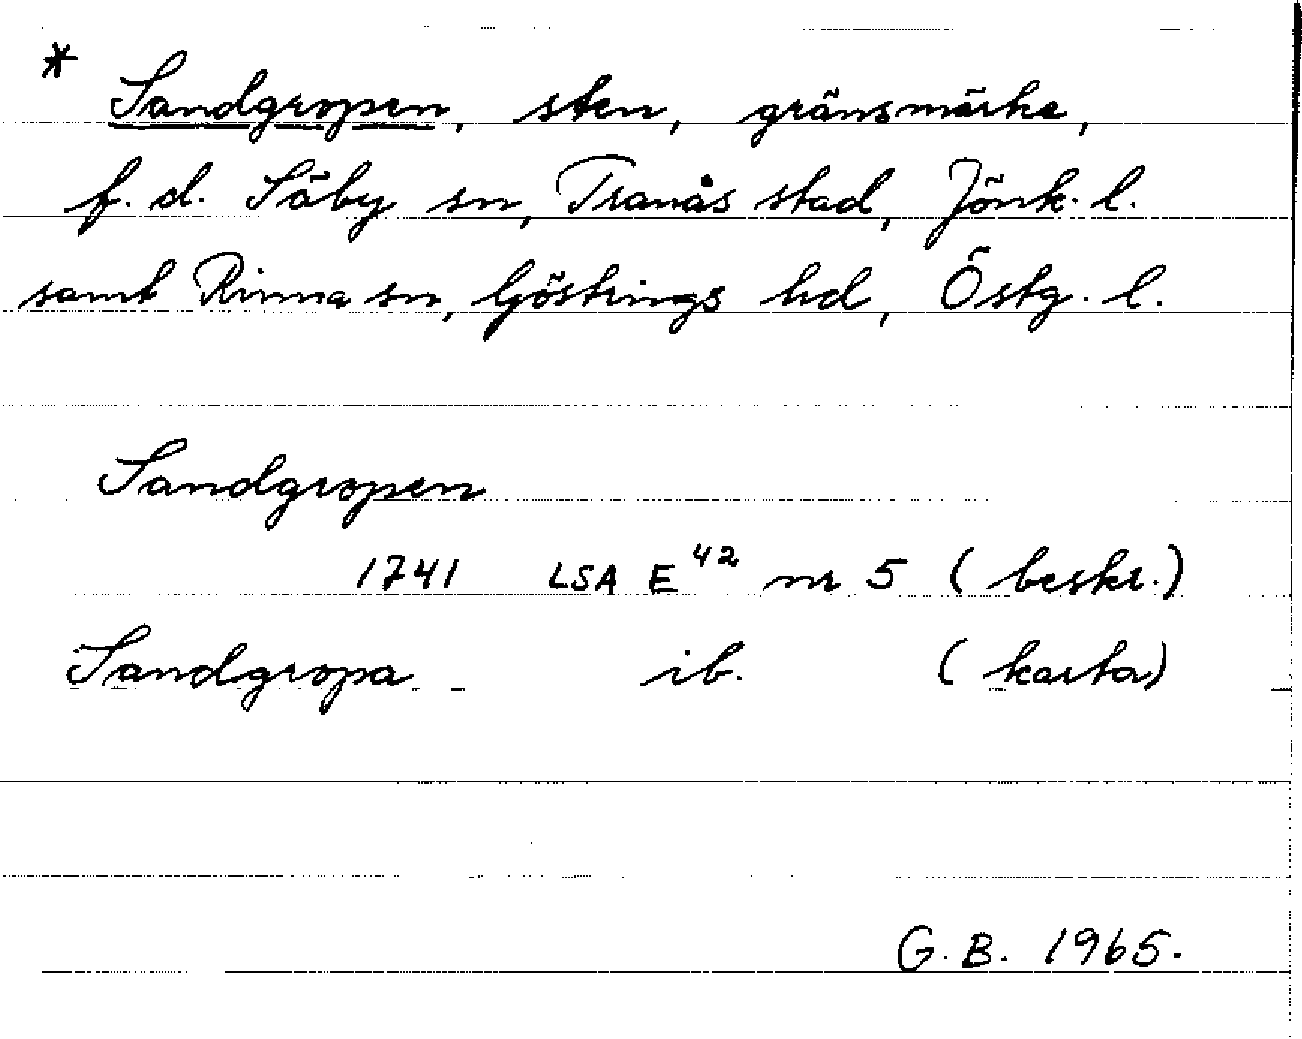 * Sandgropen, sten, gränsmärke,
f.d. Säby sn, Tranås stad, Jönk. l.
samt Rinna sn, Göstrings hd, Östg. l.
Sandgropen
1741 LSA E⁴² nr 5 (beskr.)
Sandgropa ib. (karta)
G.B. 1965.